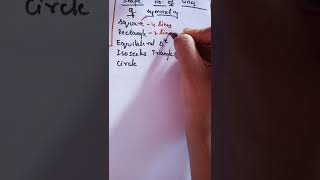 Shape No: of Lines
of symmetry
Square - 4 lines
Rectangle - 2 lines
Equilateral Δle
Isoseles Triangle
Circle